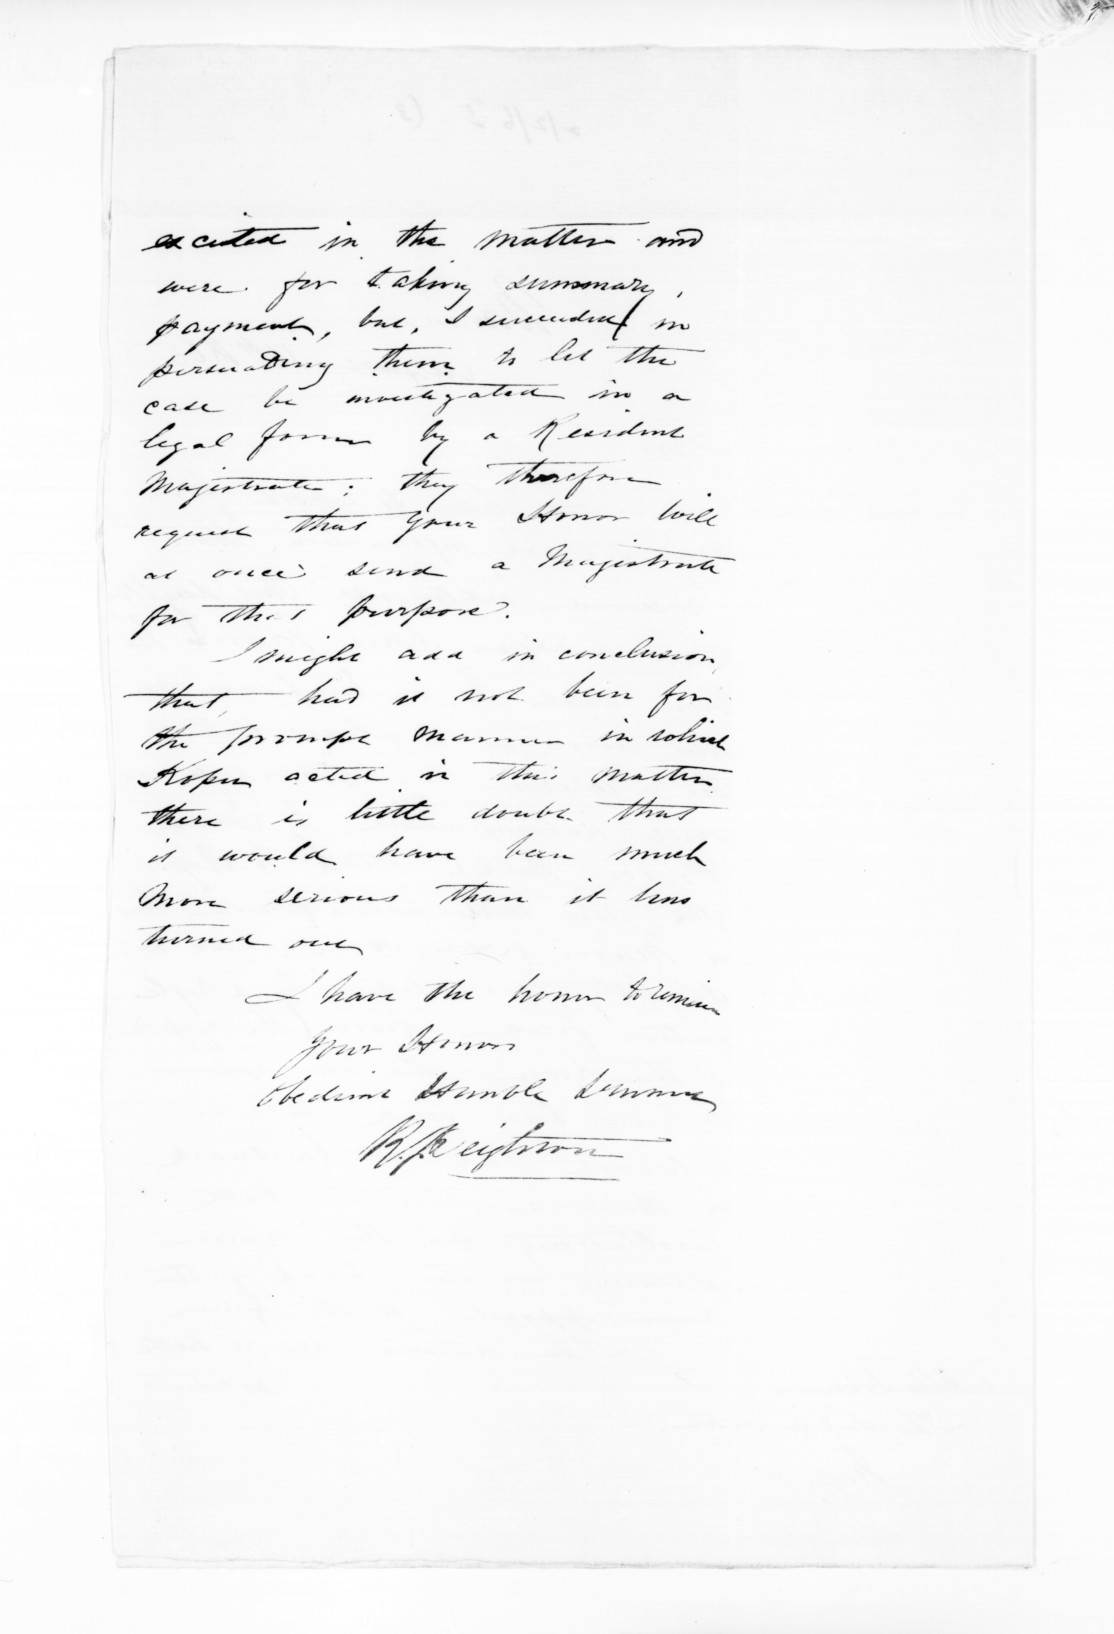 excited in the matter and
were for taking summary,
payment, but, I succeeded in
persuading them to let the
case be investigated in a
legal form by a Resident
Magistrate; they therefore
request that Your Honor will
at once send a Magistrate
for that purpose.
I might add in conclusion,
that, had it not been for
the prompt manner in which
Kopu acted in this matter
there is little doubt that
it would have been much
more serious than it has
turned out
I have the honor to remain
Your Honors
Obedient Humble Servant
R. Deighton